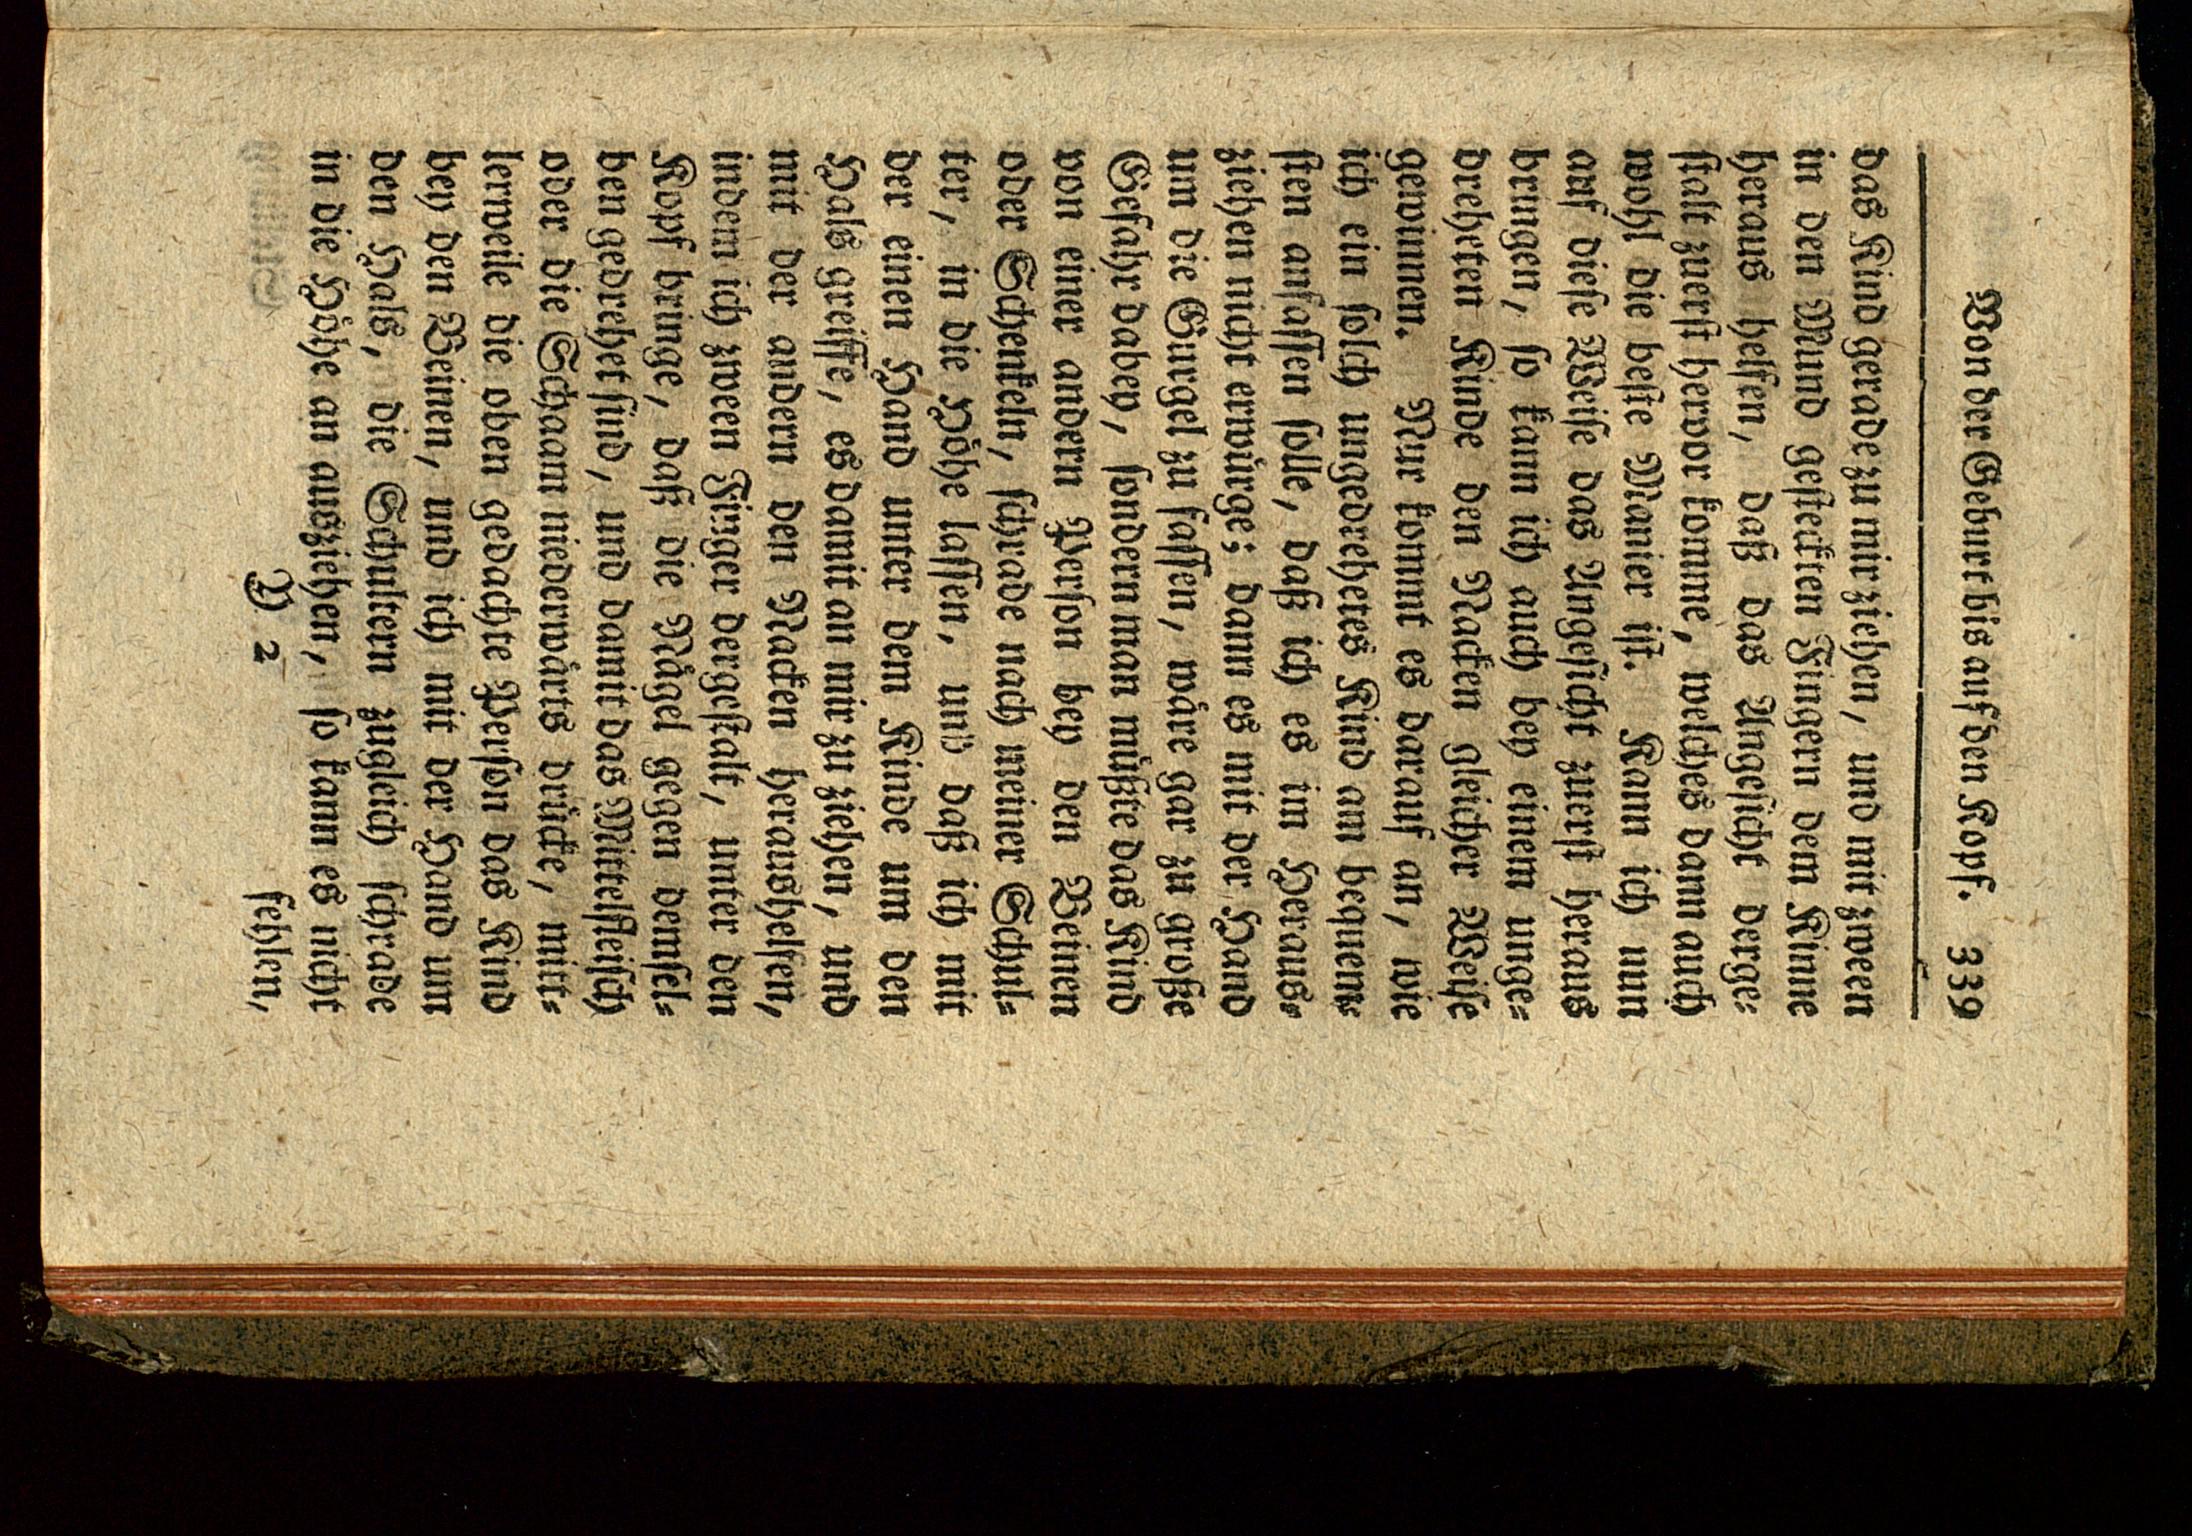 Von der Geburt bis auf den Kopf. 339
das Kind gerade zu mir ziehen, und mit zween
in den Mund gesteckten Fingern dem Kinne
heraus helfen, daß das Angesicht derge⸗
stalt zuerst hervor komme, welches dann auch
wohl die beste Manier ist. Kann ich nun
auf diese Weise das Angesicht zuerst heraus
brungen, so kann ich auch bey einem unge⸗
dreheten Kinde den Nacken gleicher Weise
gewinnen. Nur kommt es darauf an, wie
ich ein solch ungedrehetes Kind am bequem⸗
sten anfassen solle, daß ich es im Heraus⸗
ziehen nicht erwürge; dann es mit der Hand
um die Gurgel zu fassen, wäre gar zu große
Gefahr dabey, sondern man müßte das Kind
von einer andern Person bey den Beinen
oder Schenkeln, schrade nach meiner Schul⸗
ter, in die Höhe lassen, und daß ich mit
der einen Hand unter dem Kinde um den
Hals greiffe, es damit an mir zu ziehen, und
mit der andern den Nacken heraushelfen,
indem ich zween Finger dergestalt, unter den
Kopf bringe, daß die Nägel gegen demsel⸗
ben gedrehet sind, und damit das Mittelfleisch
oder die Schaam niederwärts drücke, mitt⸗
lerweile die oben gedachte Person das Kind
bey den Beinen, und ich mit der Hand um
den Hals, die Schultern zugleich schrade
in die Höhe an ausziehen, so kann es nicht
Y 2 fehlen,